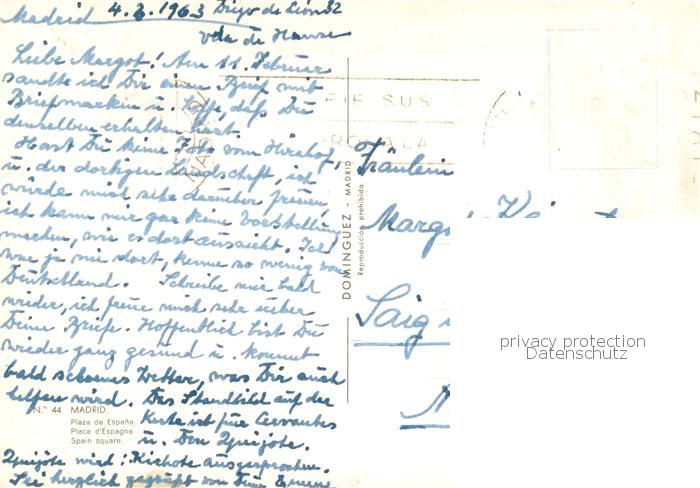 Madrid 4.3.1963 Diego de León 32
Liebe Margot! Am 11. Februar
sandte ich Dir einen Brief mit
Briefmarken u. hoffe, daß Du
denselben erhalten hast.
Hast Du keine Foto vom
u. der dortigen Landschaft, ich
würde mich sehr darüber freuen,
ich kann mir gar keine Vorstellung
machen, wie es dort aussieht. Ich
war ja nie dort, kenne so wenig von
Deutschland. Schreibe mir bald
wieder, ich freue mich sehr ueber
Deine Briefe. Hoffentlich bist Du
wieder ganz gesund u. kommt
bald schoenes Wetter, was Dir auch
helfen wird. Das Standbild auf der
Karte ist fuer Cervantes
u. Don Quijote.
Quijote wird: Kichote ausgesprochen.
Sei herzlich gegrüßt von
N.º 44 MADRID.
Plaza de España.
Place d'Espagne.
Spain square.
DOMINGUEZ - MADRID
Reproducción prohibida
Fräulein
Margot
Saig
privacy protection
Datenschutz